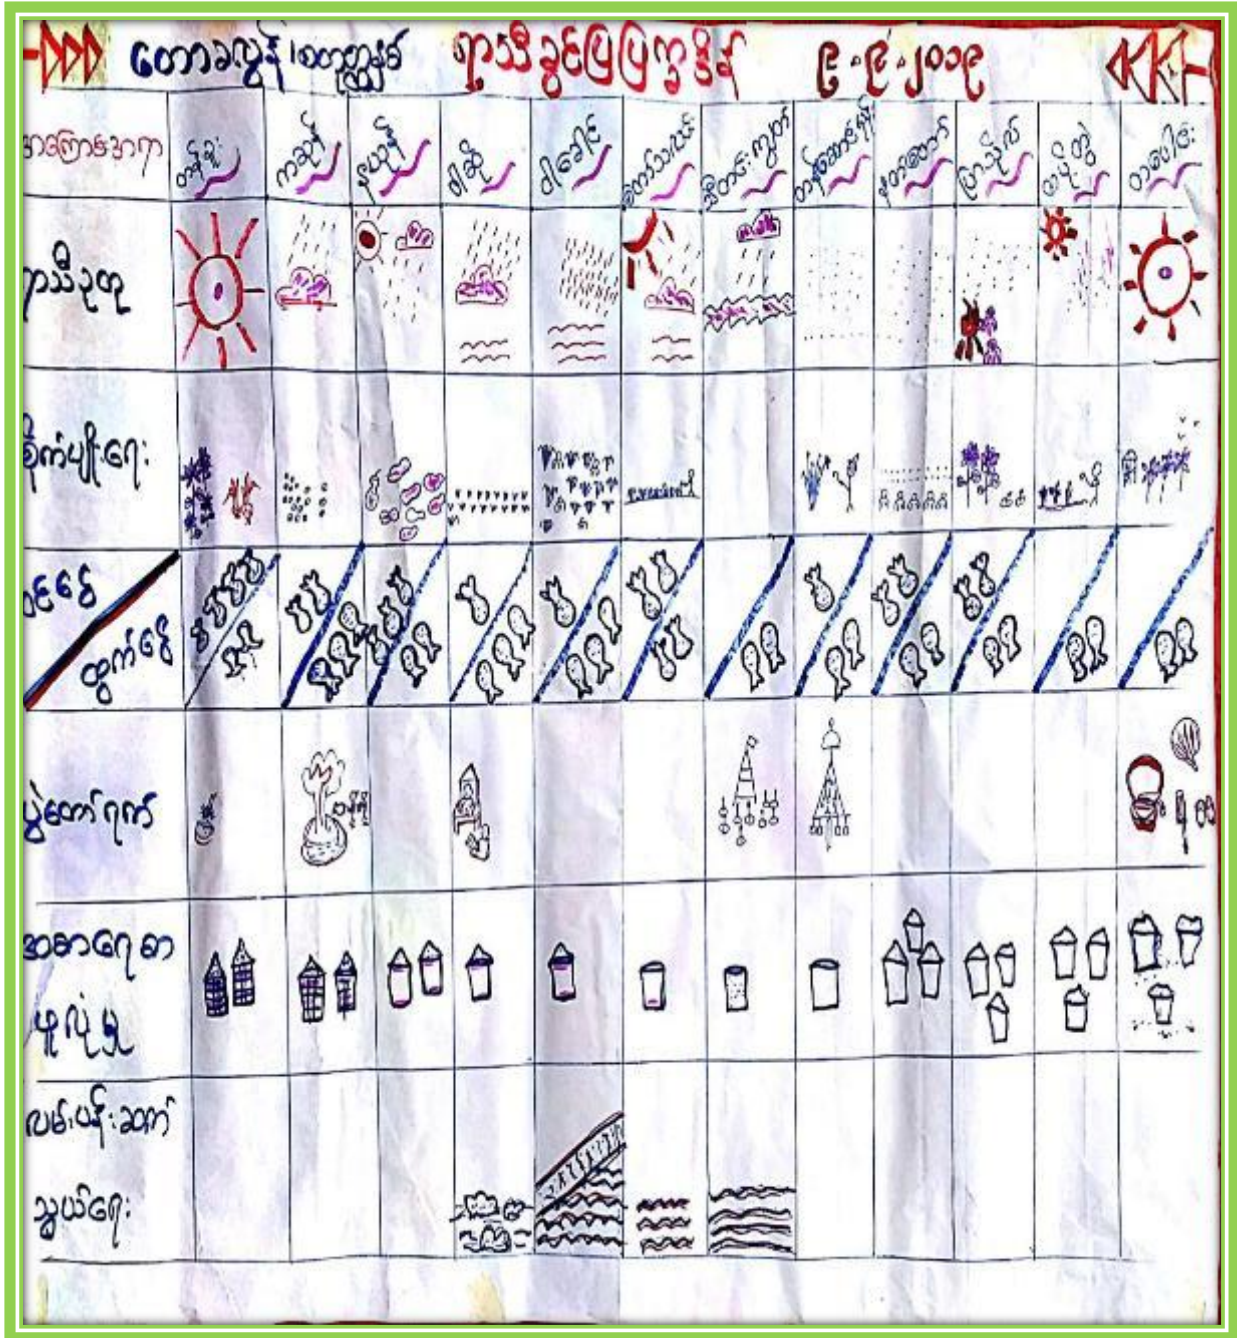 တောခလွန် ၊ စတုတ္ထနှစ် ရာသီခွင်ပြပြက္ခဒိန် ၉.၉.၂၀၁၉
အကြောင်းအရာ တန်ခူး ကဆုန် နယုန် ဝါဆို ဝါခေါင် တော်သလင်း သီတင်းကျွတ် တန်ဆောင်မုန်း နတ်တော် ပြာသိုလ် တပို့တွဲ တပေါင်း
ရာသီဥတု
စိုက်ပျိုးရေး
ဝင်ငွေ
ထွက်ငွေ
ပွဲတော်ရက်
အစာရေစာ
ဖူလုံမှု
လမ်းပန်းဆက်
သွယ်ရေး